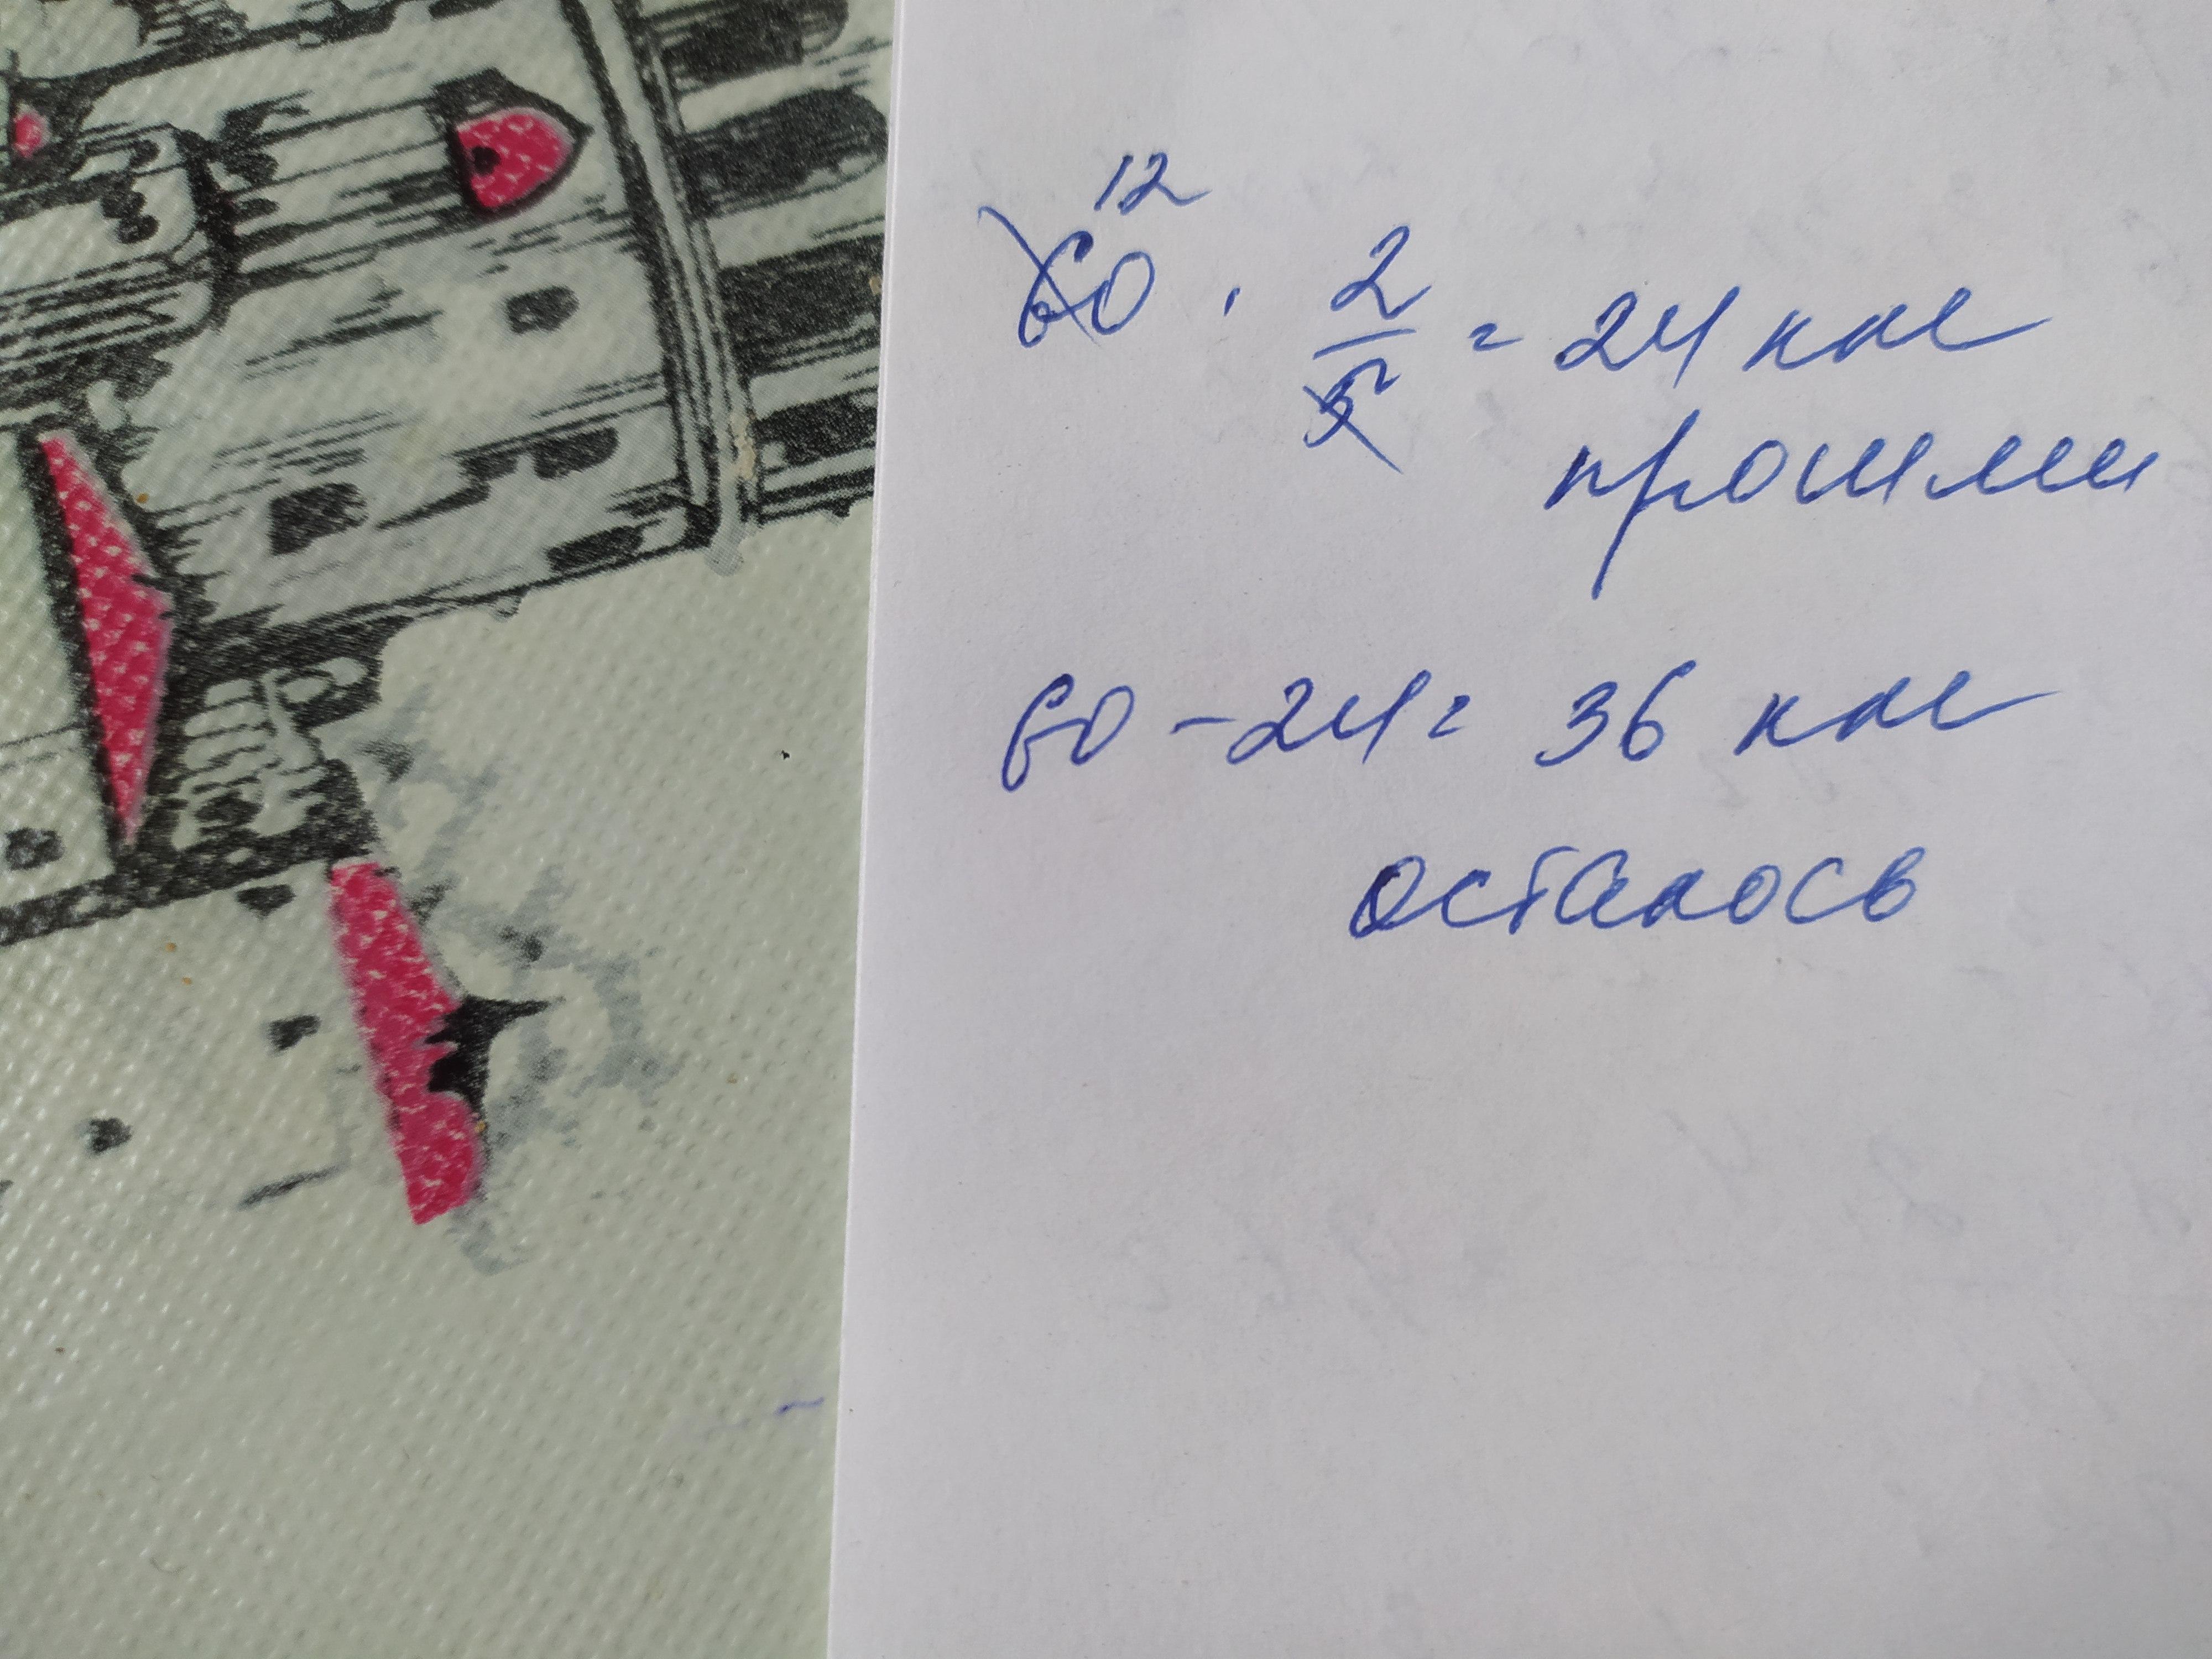 12
60 · 2/5 = 24 км
прошли
60 - 24 = 36 км
осталось